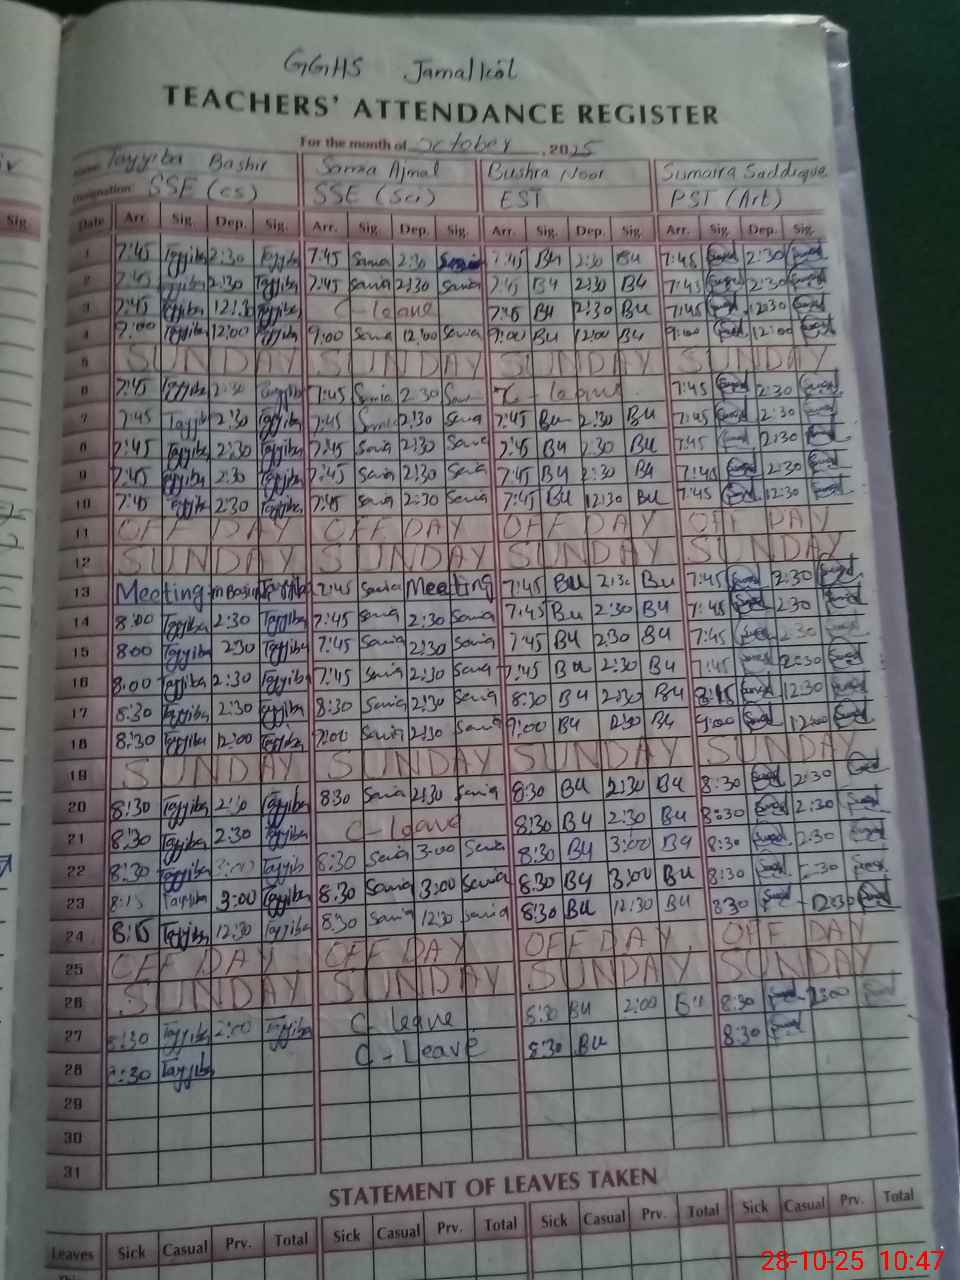 GGHS Jamalkot
TEACHERS' ATTENDANCE REGISTER
For the month of October, 2025
Name Tayyiba Bashir Samia Ajmal Bushra Noor Sumaira Saddique
Designation SSE (CS) SSE (Sci) EST PST (Art)
Date Arr. Sig. Dep. Sig. Arr. Sig. Dep. Sig. Arr. Sig. Dep. Sig. Arr. Sig. Dep. Sig.
1 7:45 Tayyiba 2:30 Tayyiba 7:45 Samia 2:30 7:45 Bu 2:30 Bu 7:45 2:30
2 7:45 Tayyiba 2:30 Tayyiba 7:45 Samia 2:30 Samia 7:45 Bu 2:30 Bu 7:45 2:30
3 7:45 Tayyiba Tayyiba C-leave 7:45 Bu 2:30 Bu 7:45 12:30
4 9:00 Tayyiba 12:00 Tayyiba 9:00 Samia 12:00 Samia 9:00 Bu 12:00 Bu 9:00 12:00
5 SUNDAY SUNDAY SUNDAY SUNDAY
6 7:45 Tayyiba 2:30 Tayyiba 7:45 Samia 2:30 C-leave 7:45 2:30
7 7:45 Tayyiba 2:30 Tayyiba 7:45 Samia 2:30 Samia 7:45 Bu 2:30 Bu 7:45 2:30
8 7:45 Tayyiba 2:30 Tayyiba 7:45 Samia 2:30 Samia 7:45 Bu 2:30 Bu 7:45 2:30
9 7:45 Tayyiba 2:30 Tayyiba 7:45 Samia 2:30 Samia 7:45 Bu 2:30 Bu 7:45 2:30
10 7:45 Tayyiba 2:30 Tayyiba 7:45 Samia 2:30 Samia 7:45 Bu 12:30 Bu 7:45 12:30
11 OFF DAY OFF DAY OFF DAY OFF DAY
12 SUNDAY SUNDAY SUNDAY SUNDAY
13 Meeting Tayyiba 7:45 Samia Meeting 7:45 Bu 2:30 Bu 7:45 2:30
14 8:00 Tayyiba 2:30 Tayyiba 7:45 Samia 2:30 Samia 7:45 Bu 2:30 Bu 7:45 2:30
15 8:00 Tayyiba 2:30 Tayyiba 7:45 Samia 2:30 Samia 7:45 Bu 2:30 Bu 7:45 2:30
16 8:00 Tayyiba 2:30 Tayyiba 7:45 Samia 2:30 Samia 7:45 Bu 2:30 Bu 7:45 2:30
17 8:30 Tayyiba 2:30 Tayyiba 8:30 Samia 2:30 Samia 8:30 Bu 2:30 Bu 12:30
18 8:30 Tayyiba 12:00 Tayyiba 9:00 Samia Samia 9:00 Bu Bu 9:00 12:00
19 SUNDAY SUNDAY SUNDAY SUNDAY
20 8:30 Tayyiba Tayyiba 8:30 Samia 2:30 Samia 8:30 Bu 2:30 Bu 8:30 2:30
21 8:30 Tayyiba 2:30 Tayyiba C-leave 8:30 Bu 2:30 Bu 8:30 2:30
22 8:30 Tayyiba 3:00 Tayyiba 8:30 Samia 3:00 Samia 8:30 Bu 3:00 Bu 8:30 2:30
23 8:15 Tayyiba 3:00 Tayyiba 8:30 Samia 3:00 Samia 8:30 Bu 3:00 Bu 8:30 2:30
24 8:15 Tayyiba 12:30 Tayyiba 8:30 Samia 12:30 Samia 8:30 Bu 12:30 Bu 8:30 12:30
25 OFF DAY OFF DAY OFF DAY OFF DAY
26 SUNDAY SUNDAY SUNDAY SUNDAY
27 8:30 Tayyiba 2:00 Tayyiba C-leave 8:30 Bu 2:00 Bu 8:30 2:00
28 8:30 Tayyiba C-Leave 8:30 Bu 8:30
29
30
31
STATEMENT OF LEAVES TAKEN
Leaves Sick Casual Prv. Total Sick Casual Prv. Total Sick Casual Prv. Total Sick Casual Prv. Total
28-10-25 10:47